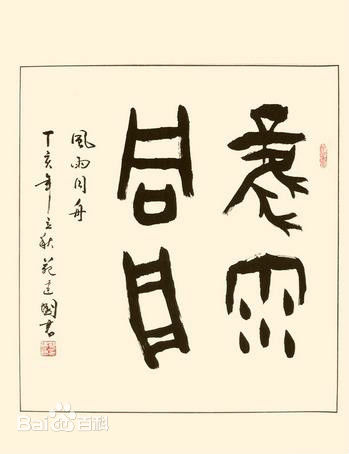 風雨
同舟
風雨同舟
丁亥年立秋范建國書
Bai百科